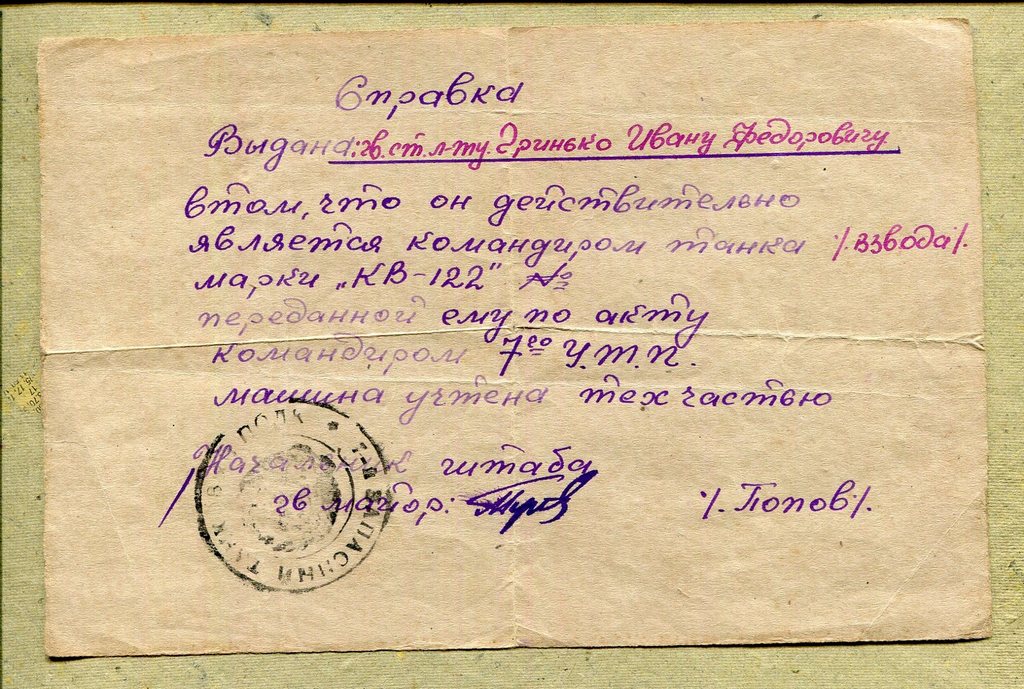 Справка
Выдана: гв. ст. л-ту. Гринько Ивану Федоровичу
втом, что он действительно
является командиром танка ./. взвода ./.
марки „КВ-122" №
переданной ему по акту
командиром 7го У.Т.П.
машина учтена тех частью
Начальник штаба
гв майор: ./. Попов ./.
7-Й ЗАПАСНЫЙ ТАНКОВ ПОЛК